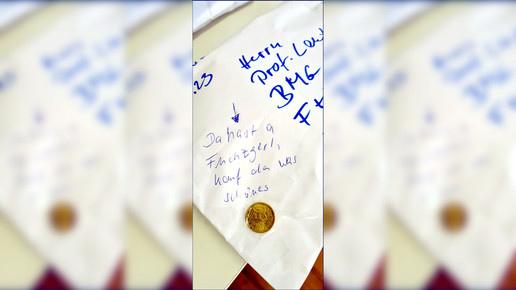 .23
Herrn
Prof. Lau
BMG
F
Da hast a
Fuchzgerl,
kauf da was
schönes